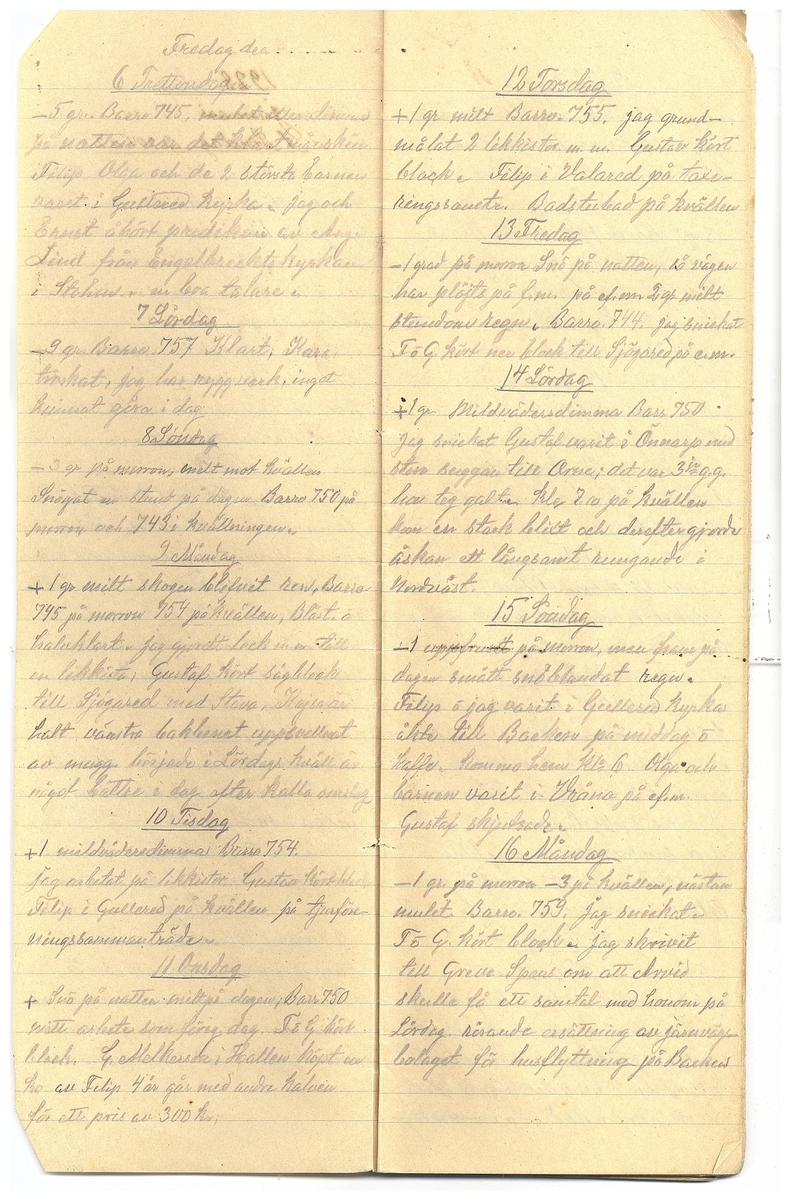 Fredag den
6 Trettondagen
-5 gr. Barro 745, mulet
på natten var det klart månsken
Filip Olga och de 2 största barnen
varit i Gullered kyrka. jag och
Ernst åhört predikan av
Lind från Engelbrecktskyrkan
i Stohm. en bra talare.
7 Lördag
-9 gr Barro 757 Klart,
jag har ryggvärk, inget
kunnat göra i dag
8 Söndag
-3 gr på morron, mitt mot kvällen
Snögat en stund på dagen Barro 750 på
morron och 743 i kvällningen.
9 Måndag
+1 gr mitt skogen blifvit ren, Barro
745 på morron 754 på kvällen, Blåst o
halvklart. jag gjordt lock m.m. till
en likkista, Gustaf kört sågblock
till Sjögared med Stava,
halt vänstra bakbenet uppsvullnat
av mugg började i Lördags kväll är
något bättre i dag efter kalla omslag
10 Tisdag
+1 mildväderdimma Barro 754.
Jag arbetat på likkistor Gustav kört block
Filip i Gullered på kvällen på tjurför-
ningssammanträde.
11 Onsdag
+ Snö på natten milt på dagen, Barr 750
mitt arbete som föreg. dag. F o G kört
block. G. Melkerson i Hallen köpt en
ko av Filip 4 år går med andre kalven
för ett pris av 300 kr,
12 Torsdag
+1 gr milt Barro. 755. jag grund-
målat 2 likkistor m.m. Gustav kört
block. Filip i Valared på taxe-
ringsarbete. Badstubad på kvällen
13 Fredag
-1 grad på morron Snö på natten, så vägen
har plöjts på f.m. på ef.m. 2 gr milt
stundom regn. Barro. 744. jag snickat
F o G kört ner block till Sjögared på e.m.
14 Lördag
+1 gr Mildvädersdimma Barr 750
jag snickat Gustaf varit i Önnarp med
stora suggan till Orne; det var 3dje g.g.
hon tog galt. kl. 7 10 på kvällen
kom en stark blixt och derefter gjorde
åskan ett långsamt rungande i
Nordväst.
15 Söndag
-1 uppfruset på morron, men fram på
dagen smått snöblandat regn.
Filip o jag varit i Gullered kyrka
åkte till Backen på middag o
kaffe. kommo hem kl. 6 Olga och
barnen varit i Vråna på ef.m.
Gustaf skjutsade.
16 Måndag
-1 gr. på morron -3 på kvällen, nästan
mulet Barro. 759. Jag snickat.
F o G. kört block. jag skrivit
till Greve Spens om att Arvid
skulle få ett samtal med honom på
Lördag rörande ersättning av järnvägs-
bolaget för husflyttning på Backen